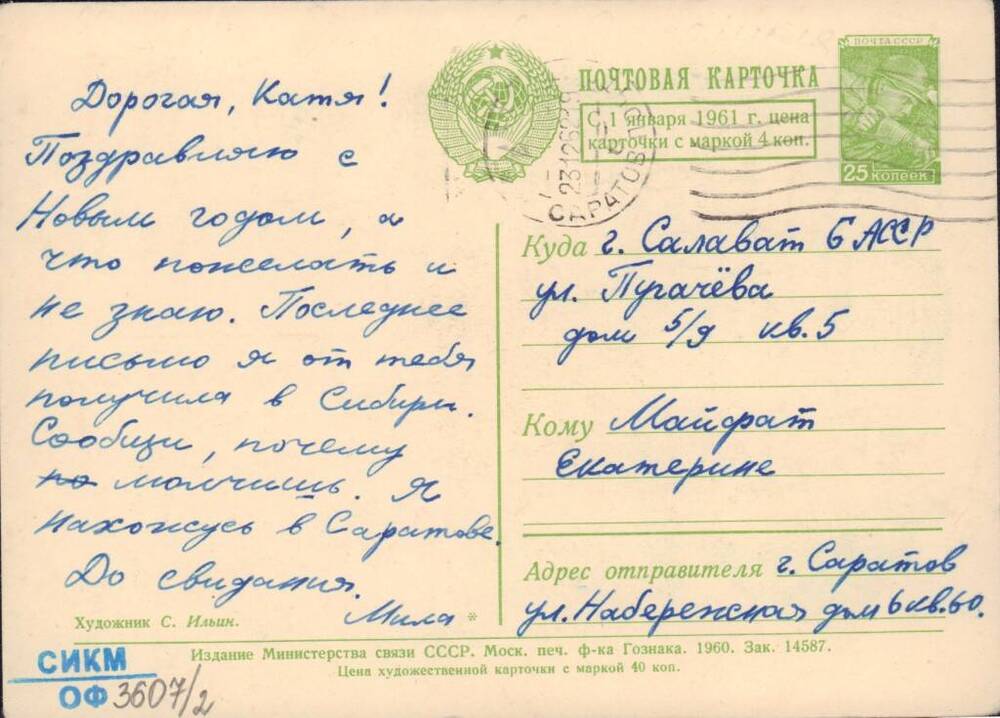 Дорогая, Катя!
Поздравляю с
Новым годом, а
что пожелать и
не знаю. Последнее
письмо я от тебя
получила в Сибири.
Сообщи, почему
по молчишь. Я
нахожусь в Саратове.
До свидания.
Мила
Художник С. Ильин.
ПОЧТОВАЯ КАРТОЧКА
С 1 января 1961 г. цена
карточки с маркой 4 коп.
ПОЧТА СССР
25 копеек
САРАТОВ
Куда г. Салават БАССР
ул. Пугачёва
дом 5/9 кв. 5
Кому Майфат
Екатерине
Адрес отправителя г. Саратов
ул. Набережная дом 6 кв. 60.
*
Издание Министерства связи СССР. Моск. печ. ф-ка Гознака. 1960. Зак. 14587.
Цена художественной карточки с маркой 40 коп.
СИКМ
ОФ 3607/2